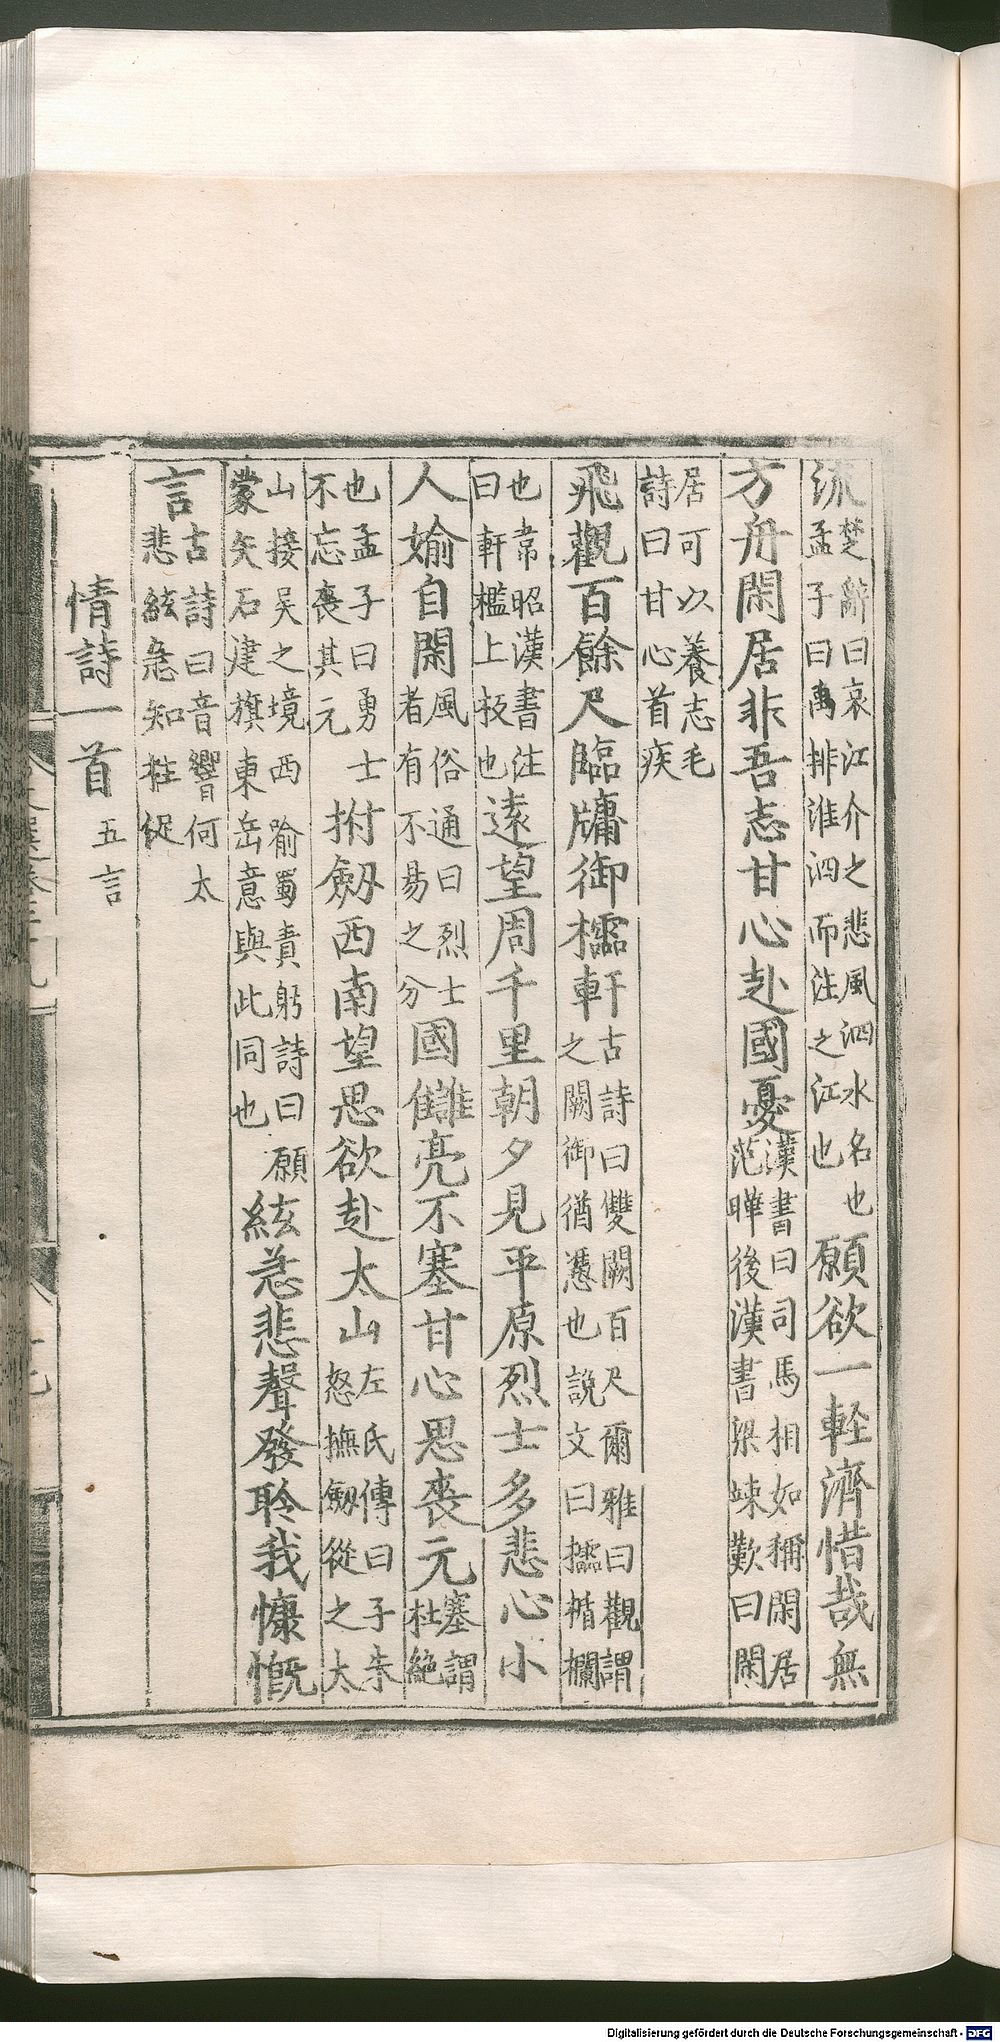 流楚辭曰哀江介之悲風泗水名也孟子曰禹排淮泗而注之江也願欲一輕濟惜哉無
方舟閑居非吾志甘心赴國憂漢書曰司馬相如稱閑居范曄後漢書梁竦歎曰閑
居可以養志毛詩曰甘心首疾
飛觀百餘尺臨牖御櫺軒古詩曰雙闕百尺爾雅曰觀謂之闕御猶憑也說文曰櫺楯欄
也韋昭漢書注曰軒檻上板也遠望周千里朝夕見平原烈士多悲心小
人媮自閑風俗通曰烈士者有不易之分國讎亮不塞甘心思喪元塞謂杜絶
也孟子曰勇士不忘喪其元拊劒西南望思欲赴太山左氏傳曰子朱怒撫劒從之太
山接吳之境西喻蜀責躬詩曰願蒙矢石建旗東岳意與此同也絃急悲聲發聆我慷慨
言古詩曰音響何太悲絃急知柱促
情詩一首五言
Digitalisierung gefördert durch die Deutsche Forschungsgemeinschaft - DFG